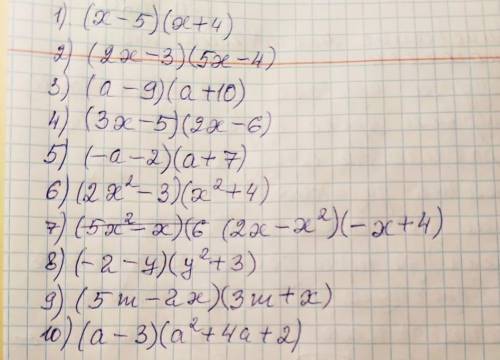 1) (x-5)(x+4)
2) (2x-3)(5x-4)
3) (a-9)(a+10)
4) (3x-5)(2x-6)
5) (-a-2)(a+7)
6) (2x²-3)(x²+4)
7) (5x²-x)(6 (2x-x²)(-x+4)
8) (-2-y)(y²+3)
9) (5m-2x)(3m+x)
10) (a-3)(a²+4a+2)